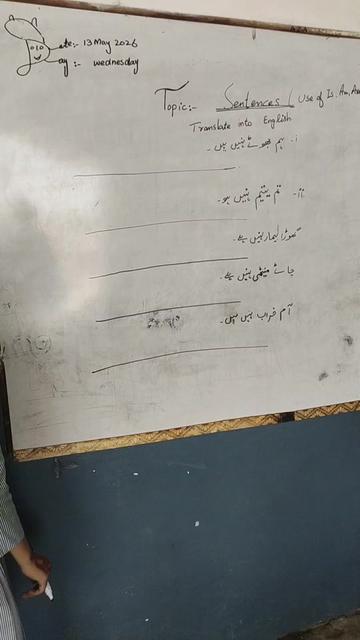 Date:- 13 May 2026
Day :- wednesday
Topic:- Sentences ( Use of Is, Am, Are
Translate into English
i- ہم جھوٹے نہیں ہیں۔
ii- تم یتیم نہیں ہو۔
گھوڑا بیمار نہیں ہے۔
چائے میٹھی نہیں ہے۔
آم خراب نہیں ہیں۔